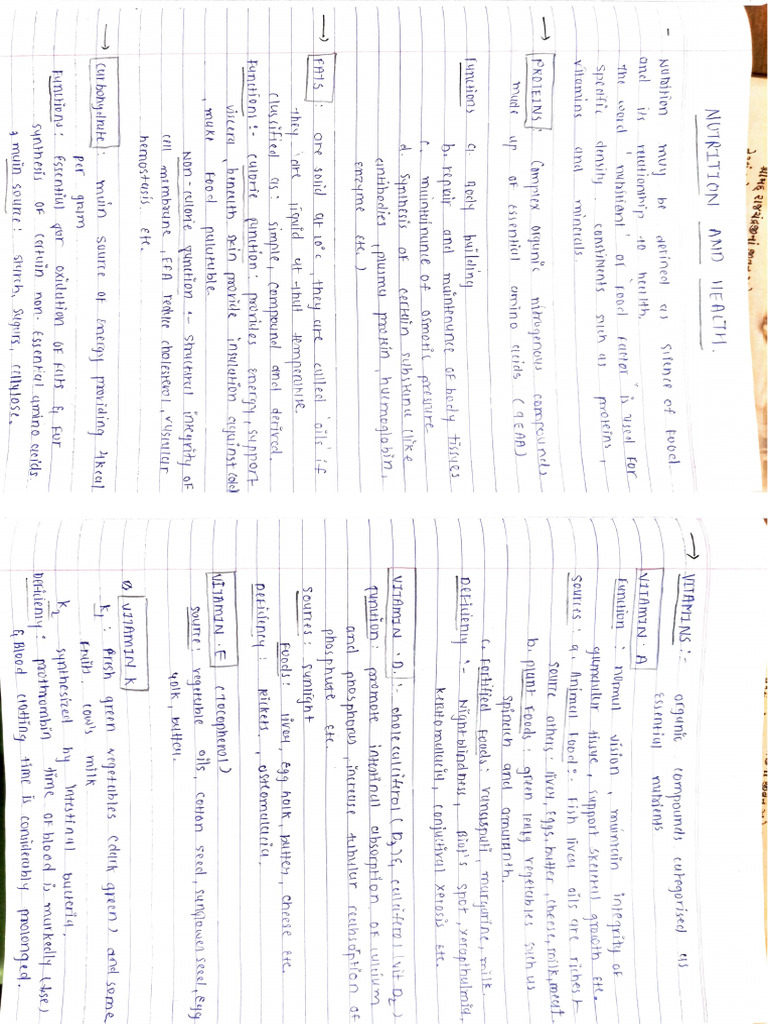 NUTRITION AND HEALTH.
- Nutrition may be defined as science of food
and its relationship to health.
The word 'nutritiant' or 'food factor' is used for
specific density constituents such as proteins,
vitamins and minerals.
→ PROTEINS: Complex organic nitrogenous compounds
made up of essential amino acids (9EAA)
Functions a. Body building
b. repair and maintenance of body tissues
c. maintainance of osmotic pressure
d. synthesis of certain substance (like
antibodies, plasma protein, haemoglobin,
enzyme etc.)
→ FATS: are solid at 20°c, they are called 'oils' if
they are liquid at that temperature.
classified as: simple, compound and derived.
Functions:- calorie function: provides energy, support
viscera, beneath skin provide insulation against cold
, make food palatable.
Non-calorie function:- structural integrity of
cell membrane, EFA reduce cholesterol, vascular
hemostasis etc.
→ Carbohydrate: main source of energy providing 4kcal
per gram
Functions: Essential for oxidation of fats & for
synthesis of certain non-essential amino acids
main source: starch, sugars, cellulose.
→ VITAMINS:- organic compounds categorised as
essential nutrients
VITAMIN-A
Function: normal vision, maintain integrity of
glandular tissue, support skeletal growth etc.
Sources: a. Animal food:- Fish liver oils are richest
source others: liver, eggs, butter, cheese, milk, meat.
b. plant foods: green leafy vegetables such us
spinach and amaranth.
c. Fortified foods: vanaspati, margarine, milk.
Deficiency:- Nightblindness, Bitot's spot, xeropthalmia,
keratomallacia, conjuctival xerosis etc.
VITAMIN-D: cholecalciferol (D3) & calciferol (vit D2)
function: promote intestinal absorption of calcium
and phosphorus, increase tubular reabsoption of
phosphate etc.
Sources: sunlight
Foods: liver, egg yolk, butter, cheese etc.
Deficiency: Rickets, osteomalacia.
VITAMIN-E (Tocopherol)
Source: vegetable oils, cotton seed, sunflower seed, egg
yolk, butter.
VITAMIN K
K1: fresh green vegetables (dark green) and some
fruits. cow's milk
K2 synthesized by intestinal bacteria.
Deficiency: prothrombin time of blood is markedly (↑se)
& Blood clotting time is considerably prolonged.